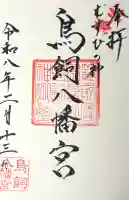 奉拝
むすびの神
鳥飼八幡宮
令和八年二月十三日
鳥飼